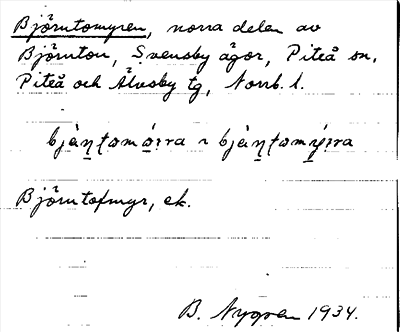 Björntomyren, norra delen av
Björnton, Svensby ägor, Piteå sn,
Piteå och Älvsby tg, Norrb. l.
Björntofmyr, ek.
B. Nygren 1934.